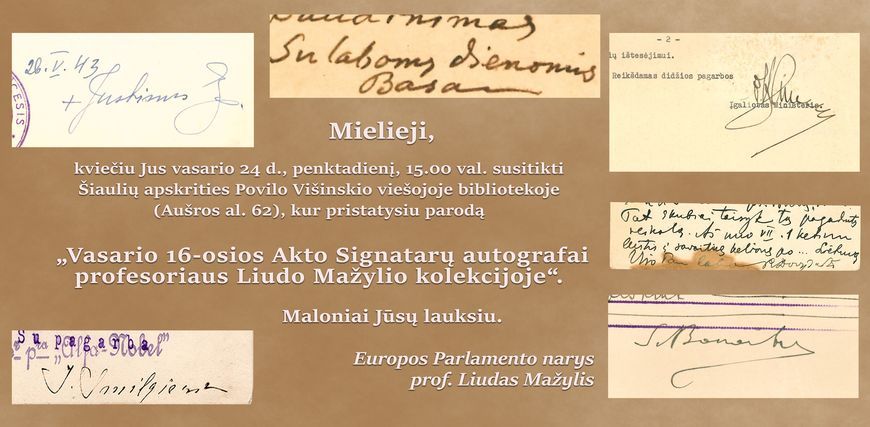 28. V. 43
+ Justinus
CESIS
Su laboms dienomis
Basa
- 2 -
ių ištesėjimui.
Reikšdamas didžios pagarbos
Įgaliotas Ministeris.
Mielieji,
kviečiu Jus vasario 24 d., penktadienį, 15.00 val. susitikti
Šiaulių apskrities Povilo Višinskio viešojoje bibliotekoje
(Aušros al. 62), kur pristatysiu parodą
„Vasario 16-osios Akto Signatarų autografai
profesoriaus Liudo Mažylio kolekcijoje“.
Maloniai Jūsų lauksiu.
Europos Parlamento narys
prof. Liudas Mažylis
Su pagarba
„Alfa-Nobel"
J. Smilgien